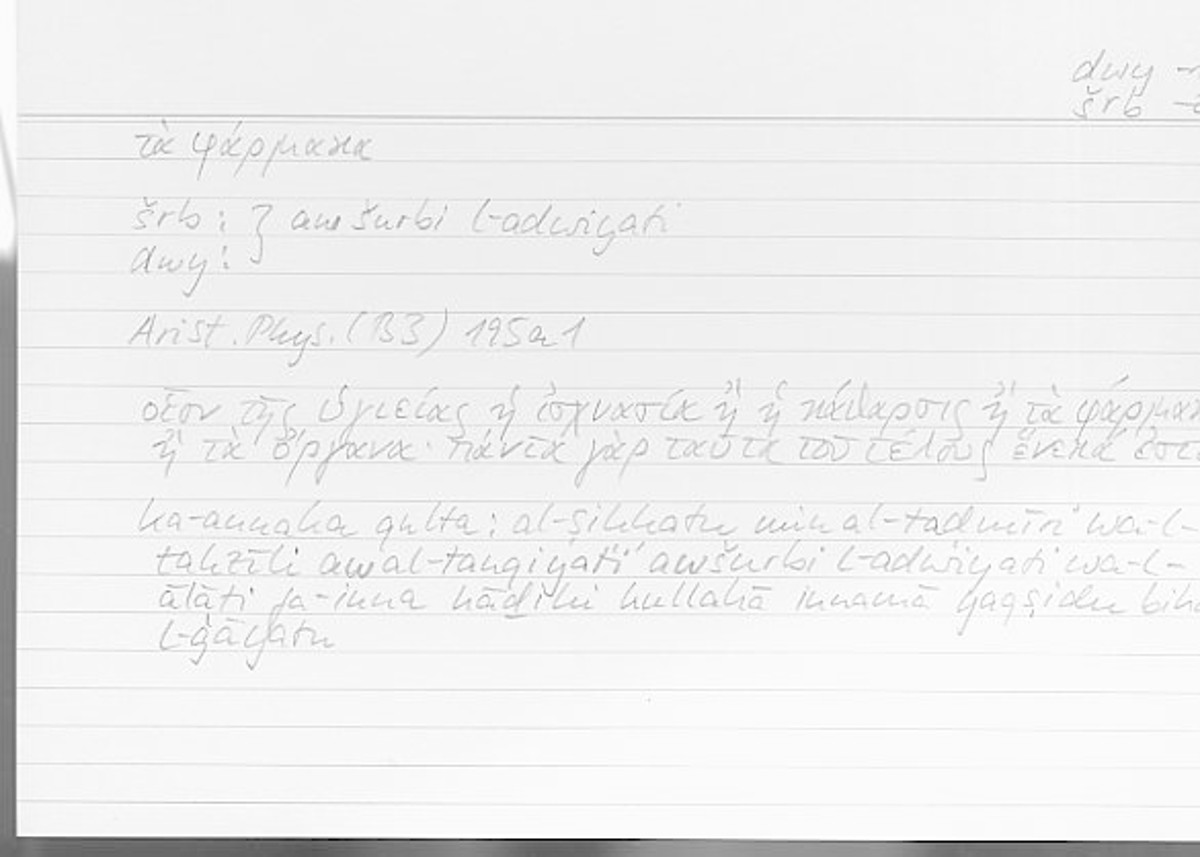 dwy
šrb
τὰ φάρμακα
šrb : } aw šurbi l-adwiyati
dwy :
Arist. Phys. (B3) 195a1
οἷον τῆς ὑγιείας ἡ ἰσχνασία ἢ ἡ κάθαρσις ἢ τὰ φάρμα
ἢ τὰ ὄργανα· πάντα γὰρ ταῦτα τοῦ τέλους ἕνεκά ἐστ
ka-annaka qulta : al-ṣiḥḥatu min al-taḍmīri wa-l-
tahzīli aw al-tanqiyati aw šurbi l-adwiyati wa-l-
ālāti fa-inna hāḏihi kullahā innamā yaqṣidu bih
l-ġāyatu